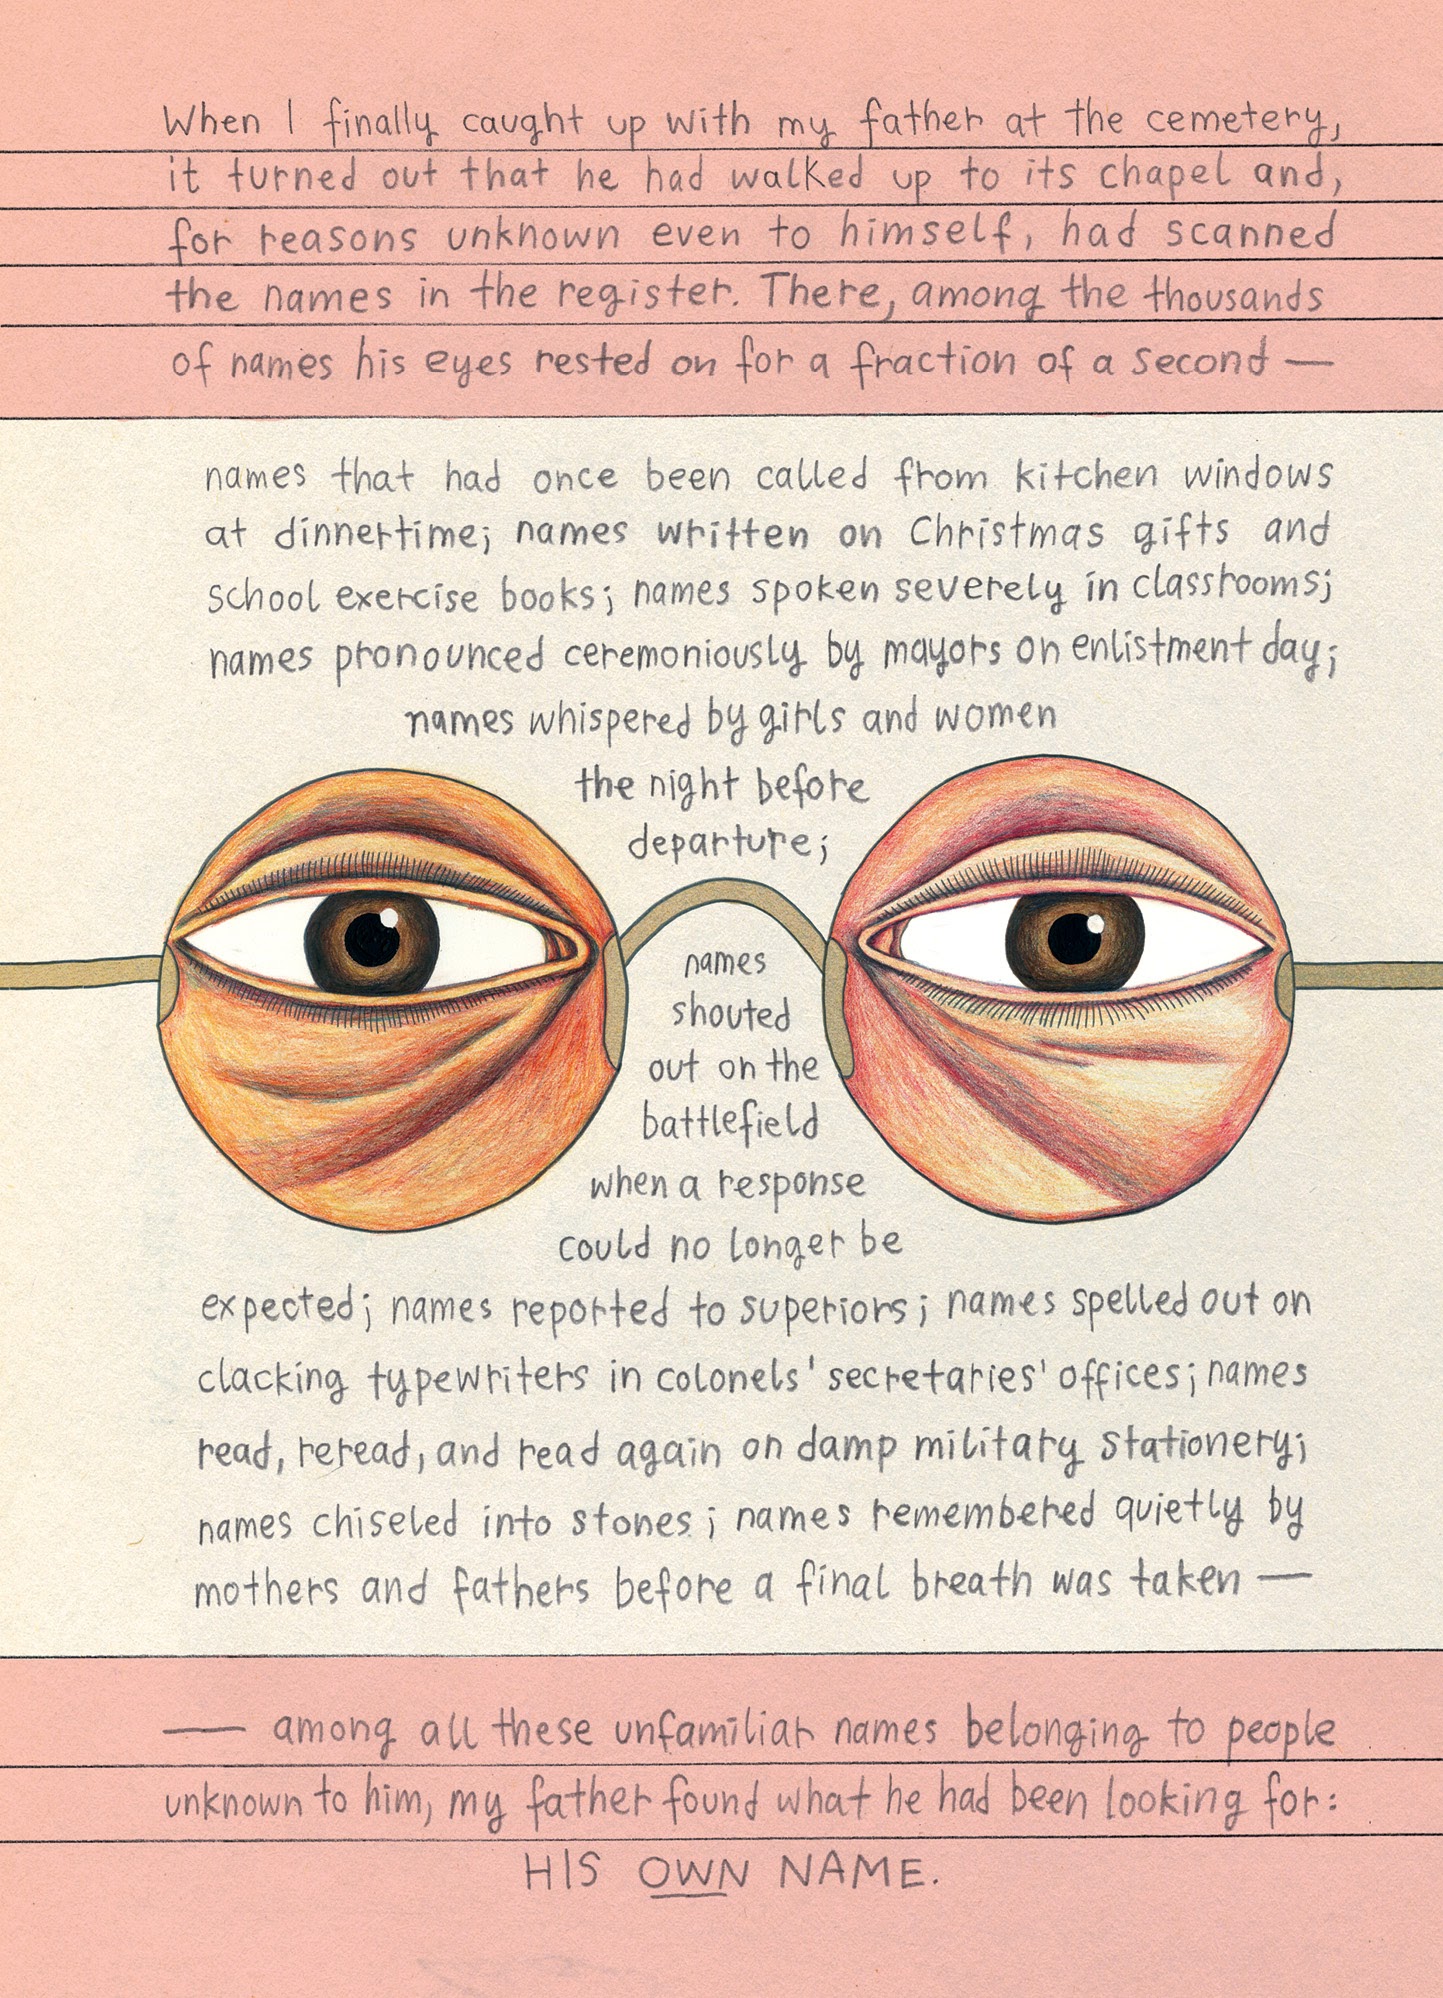 When I finally caught up with my father at the cemetery,
it turned out that he had walked up to its chapel and,
for reasons unknown even to himself, had scanned
the names in the register. There, among the thousands
of names his eyes rested on for a fraction of a second —
names that had once been called from kitchen windows
at dinnertime; names written on Christmas gifts and
school exercise books; names spoken severely in classrooms;
names pronounced ceremoniously by mayors on enlistment day;
names whispered by girls and women
the night before
departure;
names
shouted
out on the
battlefield
when a response
could no longer be
expected; names reported to superiors; names spelled out on
clacking typewriters in colonels' secretaries' offices; names
read, reread, and read again on damp military stationery;
names chiseled into stones; names remembered quietly by
mothers and fathers before a final breath was taken —
— among all these unfamiliar names belonging to people
unknown to him, my father found what he had been looking for:
HIS OWN NAME.